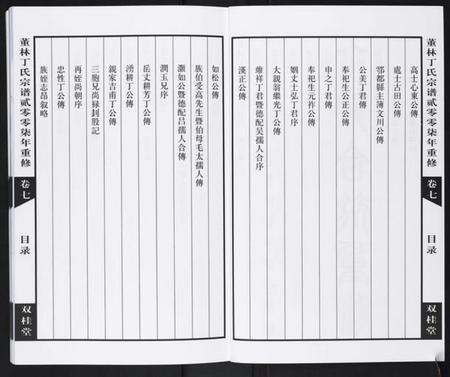 董林丁氏宗谱贰零零柒年重修
卷七
目录
双桂堂
高士心東公傳
處士古田公傳
鄂都縣主簿文川公傳
公美丁君傳
奉祀生公正公傳
申之丁君傳
奉祀生元祚公傳
姻丈士弘丁君序
大親翁繼光丁公傳
維祥丁君暨德配吴孺人合序
漢正公傳
如松公傳
族伯受高先生暨伯母毛太孺人傳
灝如公暨德配吕孺人合傳
潤玉兄序
岳丈耕芳丁公傳
濤耕丁公傳
親家吉甫丁公傳
三胞兄尚禄刲股記
再姪尚朝序
忠性丁公傳
族姪志昂叙略
董林丁氏宗谱贰零零柒年重修
卷七
目录
双桂堂